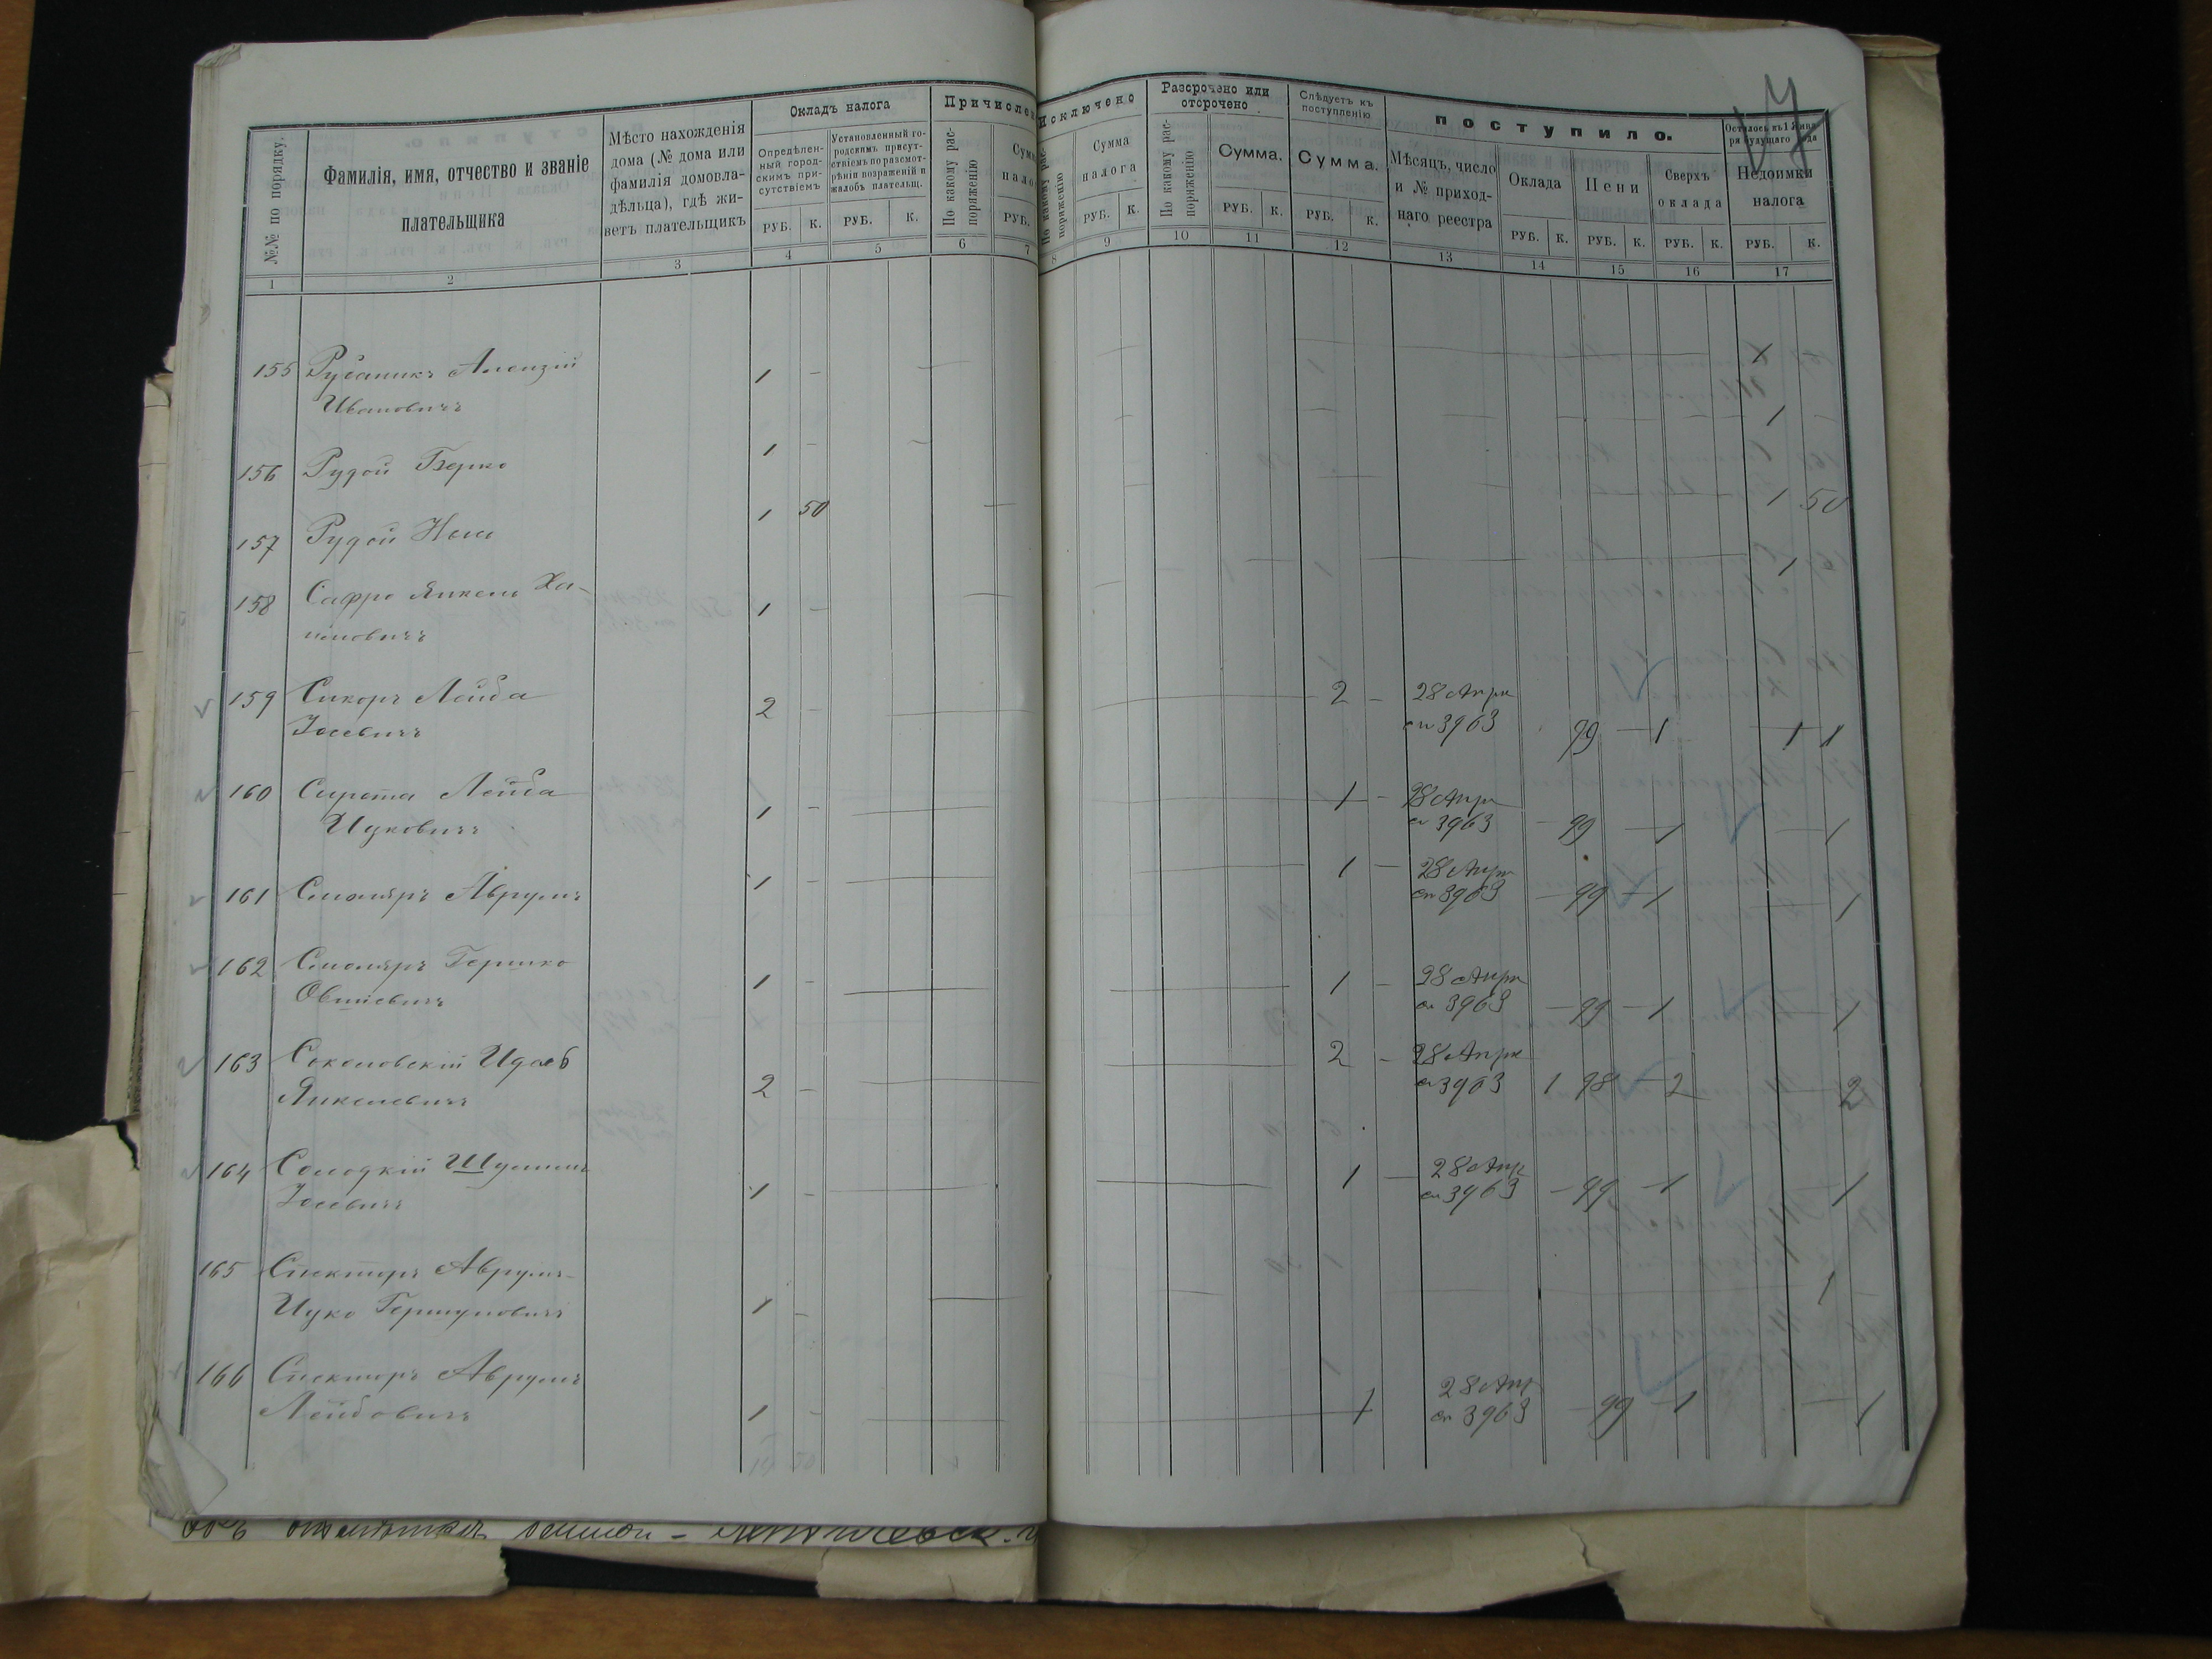 №№ по порядку.
Фамилія, имя, отчество и званіе
плательщика
Мѣсто нахожденія
дома (№ дома или
фамилія домовла-
дѣльца), гдѣ жи-
ветъ плательщикъ
Окладъ налога
Опредѣлен-
ный город-
скимъ при-
сутствіемъ
Установленный го-
родскимъ присут-
ствіемъ по разсмот-
рѣніи возраженій и
жалобъ плательщ.
РУБ. К. РУБ. К.
Причислен
По какому рас-
поряженію
Сумм
нало
РУБ.
Исключено
По какому рас-
поряженію
Сумма
налога
РУБ. К.
Разсрочено или
отсрочено
По какому рас-
поряженію
Сумма.
РУБ. К.
Слѣдуетъ къ
поступленію
Сумма.
РУБ. К.
поступило.
Мѣсяцъ, число
и № приход-
наго реестра
Оклада
РУБ. К.
Пени
РУБ. К.
Сверхъ
оклада
РУБ. К.
Осталось къ 1 Янва-
ря будущаго года
Недоимки
налога
РУБ. К.
1 2 3 4 5 6 7 8 9 10 11 12 13 14 15 16 17
155 Рубаникъ 1 – 1
Ивановичъ
156 Рудой Берко 1 – 1 –
157 Рудой 1 50 1 50
158 Сафро Янкель Ха- 1 – 1
имовичъ
159 Сикоръ Лейба 2 – 2 – 28 Апрл
Іосевичъ ст 3963 99 – 1 1 1
160 Сирота Лейба 1 – 1 – 28 Апрл
Ицковичъ ст 3963 – 99 – 1 – 1
161 Смоляръ Аврумъ 1 – 1 – 28 Апрл
ст 3963 – 99 – 1 – 1
162 Смоляръ Гершко 1 – 1 – 28 Апрл
Овшіевичъ ст 3963 – 99 – 1 – 1
163 Соколовскій 2 – 2 – 28 Апрл
Янкелевичъ ст 3963 1 98 – 2 – 2
164 Солодкій Шулимъ 1 – 1 – 28 Апр
Іосевичъ ст 3963 – 99 – 1 – 1
165 Спекторъ Аврумъ- 1
Ицко Гершуновичъ 1 –
166 Спекторъ Аврумъ 28 Апр
Лейбовичъ 1 – 1 ст 3963 – 99 – 1 – 1
14 50